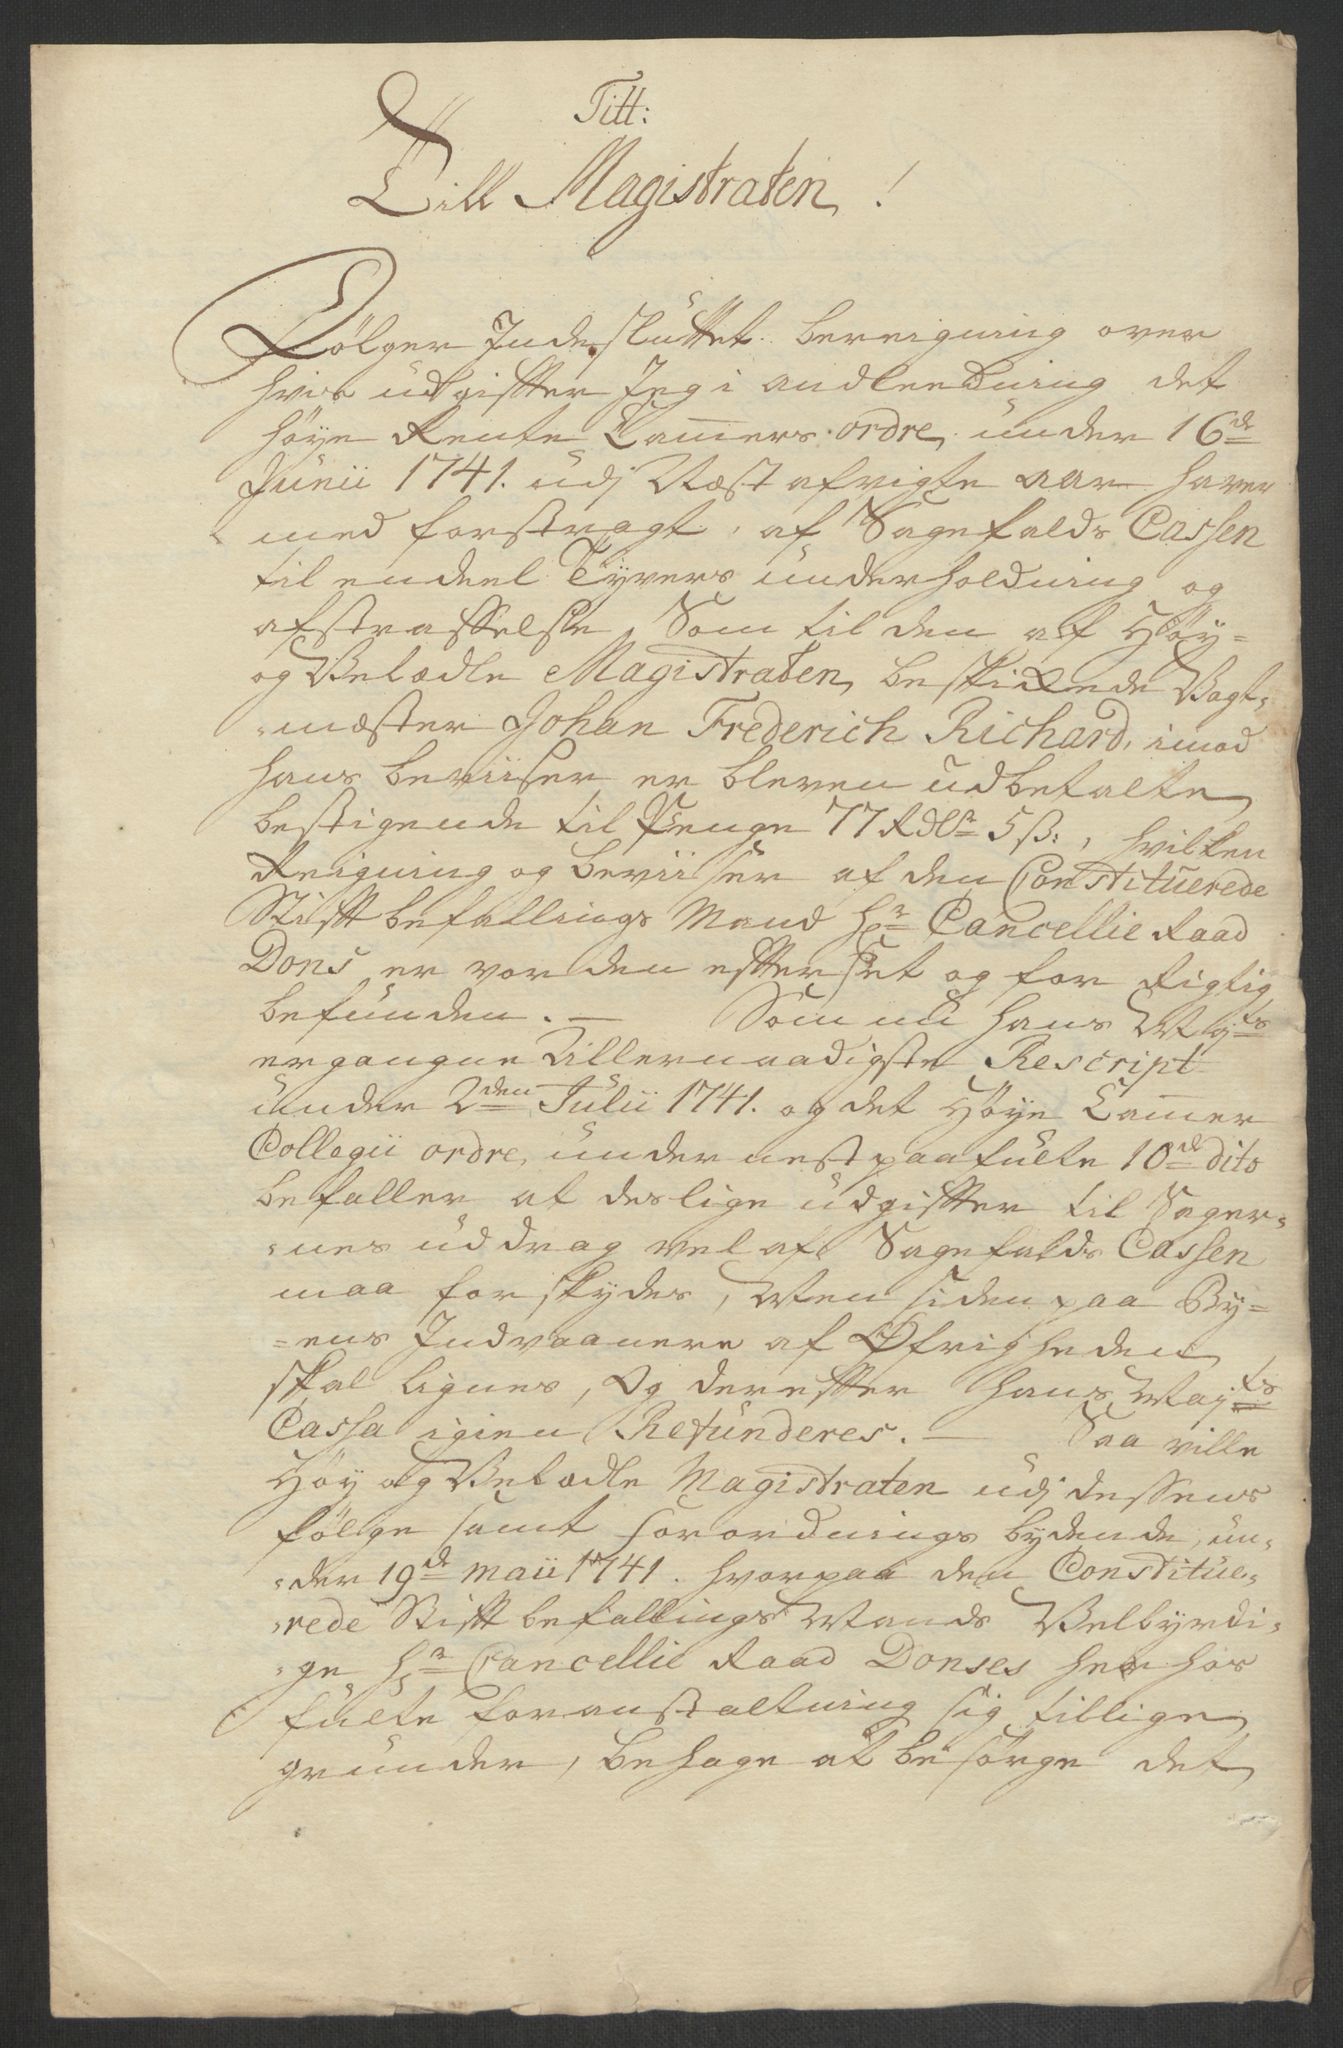 Titt:
Till Magistraten!
Følger Indesluttet bereigning over
hvis udgiffter Jeg i andleedning det
høye Rente Camers ordre, under 16de
Junii 1741. udj Næst afvigte aar haver
med forstragt, af Sagefalds Cassen
til endeel Tyvers underholdning og
afstraffelse, Som til den af Høy-
og Velædle Magistraten, beskikkede Vagt-
mæster Johan Frederich Richard, imod
hans beviiser er bleven udbetalte
bestigende til Penge 77 Rdlr 5 ß:, hvilken
Reigning og beviiser af den Constituerede
Stiftbefallings Mand Hr Cancellie Raad
Dons er vorden efterset og for Rigtig
befunden. — Som nu hans Mayts
ergangne Allernaadigste Rescript
under 2den Julii 1741. og det Høye Camer
Collegii ordre, under nestpaafulte 10de dito
befaller at deslige udgiffter til Sager-
nes uddrag vel af Sagefalds Cassen
maa forskydes, Men siden paa By-
ens Indvaanere af Øfrigheden
skal lignes, Og derefter Hans Mayts
Cassa igien Refunderes. — Saa ville
Høy og Velædle Magistraten udj dessens
følge samt forordnings bydende, un-
der 19de Maii 1741. hvorpaa den Constitue-
rede Stiftbefallings Mands Velbyrdi-
ge Hr Cancellie Raad Donses her hos
fulte foranstaltning sig tillige
grunder, behage at besørge det